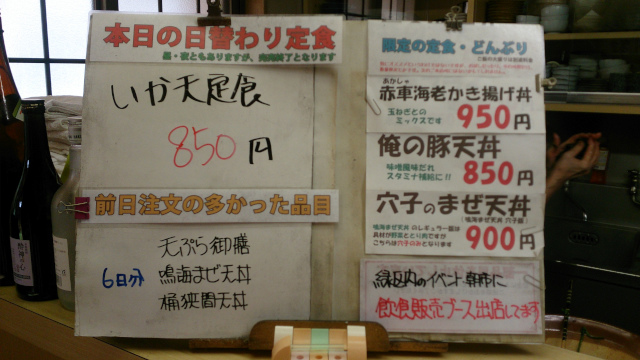 本日の日替わり定食
昼・夜ともありますが、売切終了となります
いか天定食
850円
前日注文の多かった品目
6日分
天ぷら御膳
鳴海まぜ天丼
桶狭間天丼
限定の定食・どんぶり
あかしゃ
赤車海老かき揚げ丼
玉ねぎとの
ミックスです
950円
俺の豚天丼
味噌風味だれ
スタミナ補給に!!
850円
穴子のまぜ天丼
(鳴海まぜ天丼 穴子版)
鳴海まぜ天丼 のレギュラー版は
具材が野菜ととり肉ですが
こちらは穴子のみとなります
900円
緑区内のイベント・朝市に
飲食販売ブース出店してます